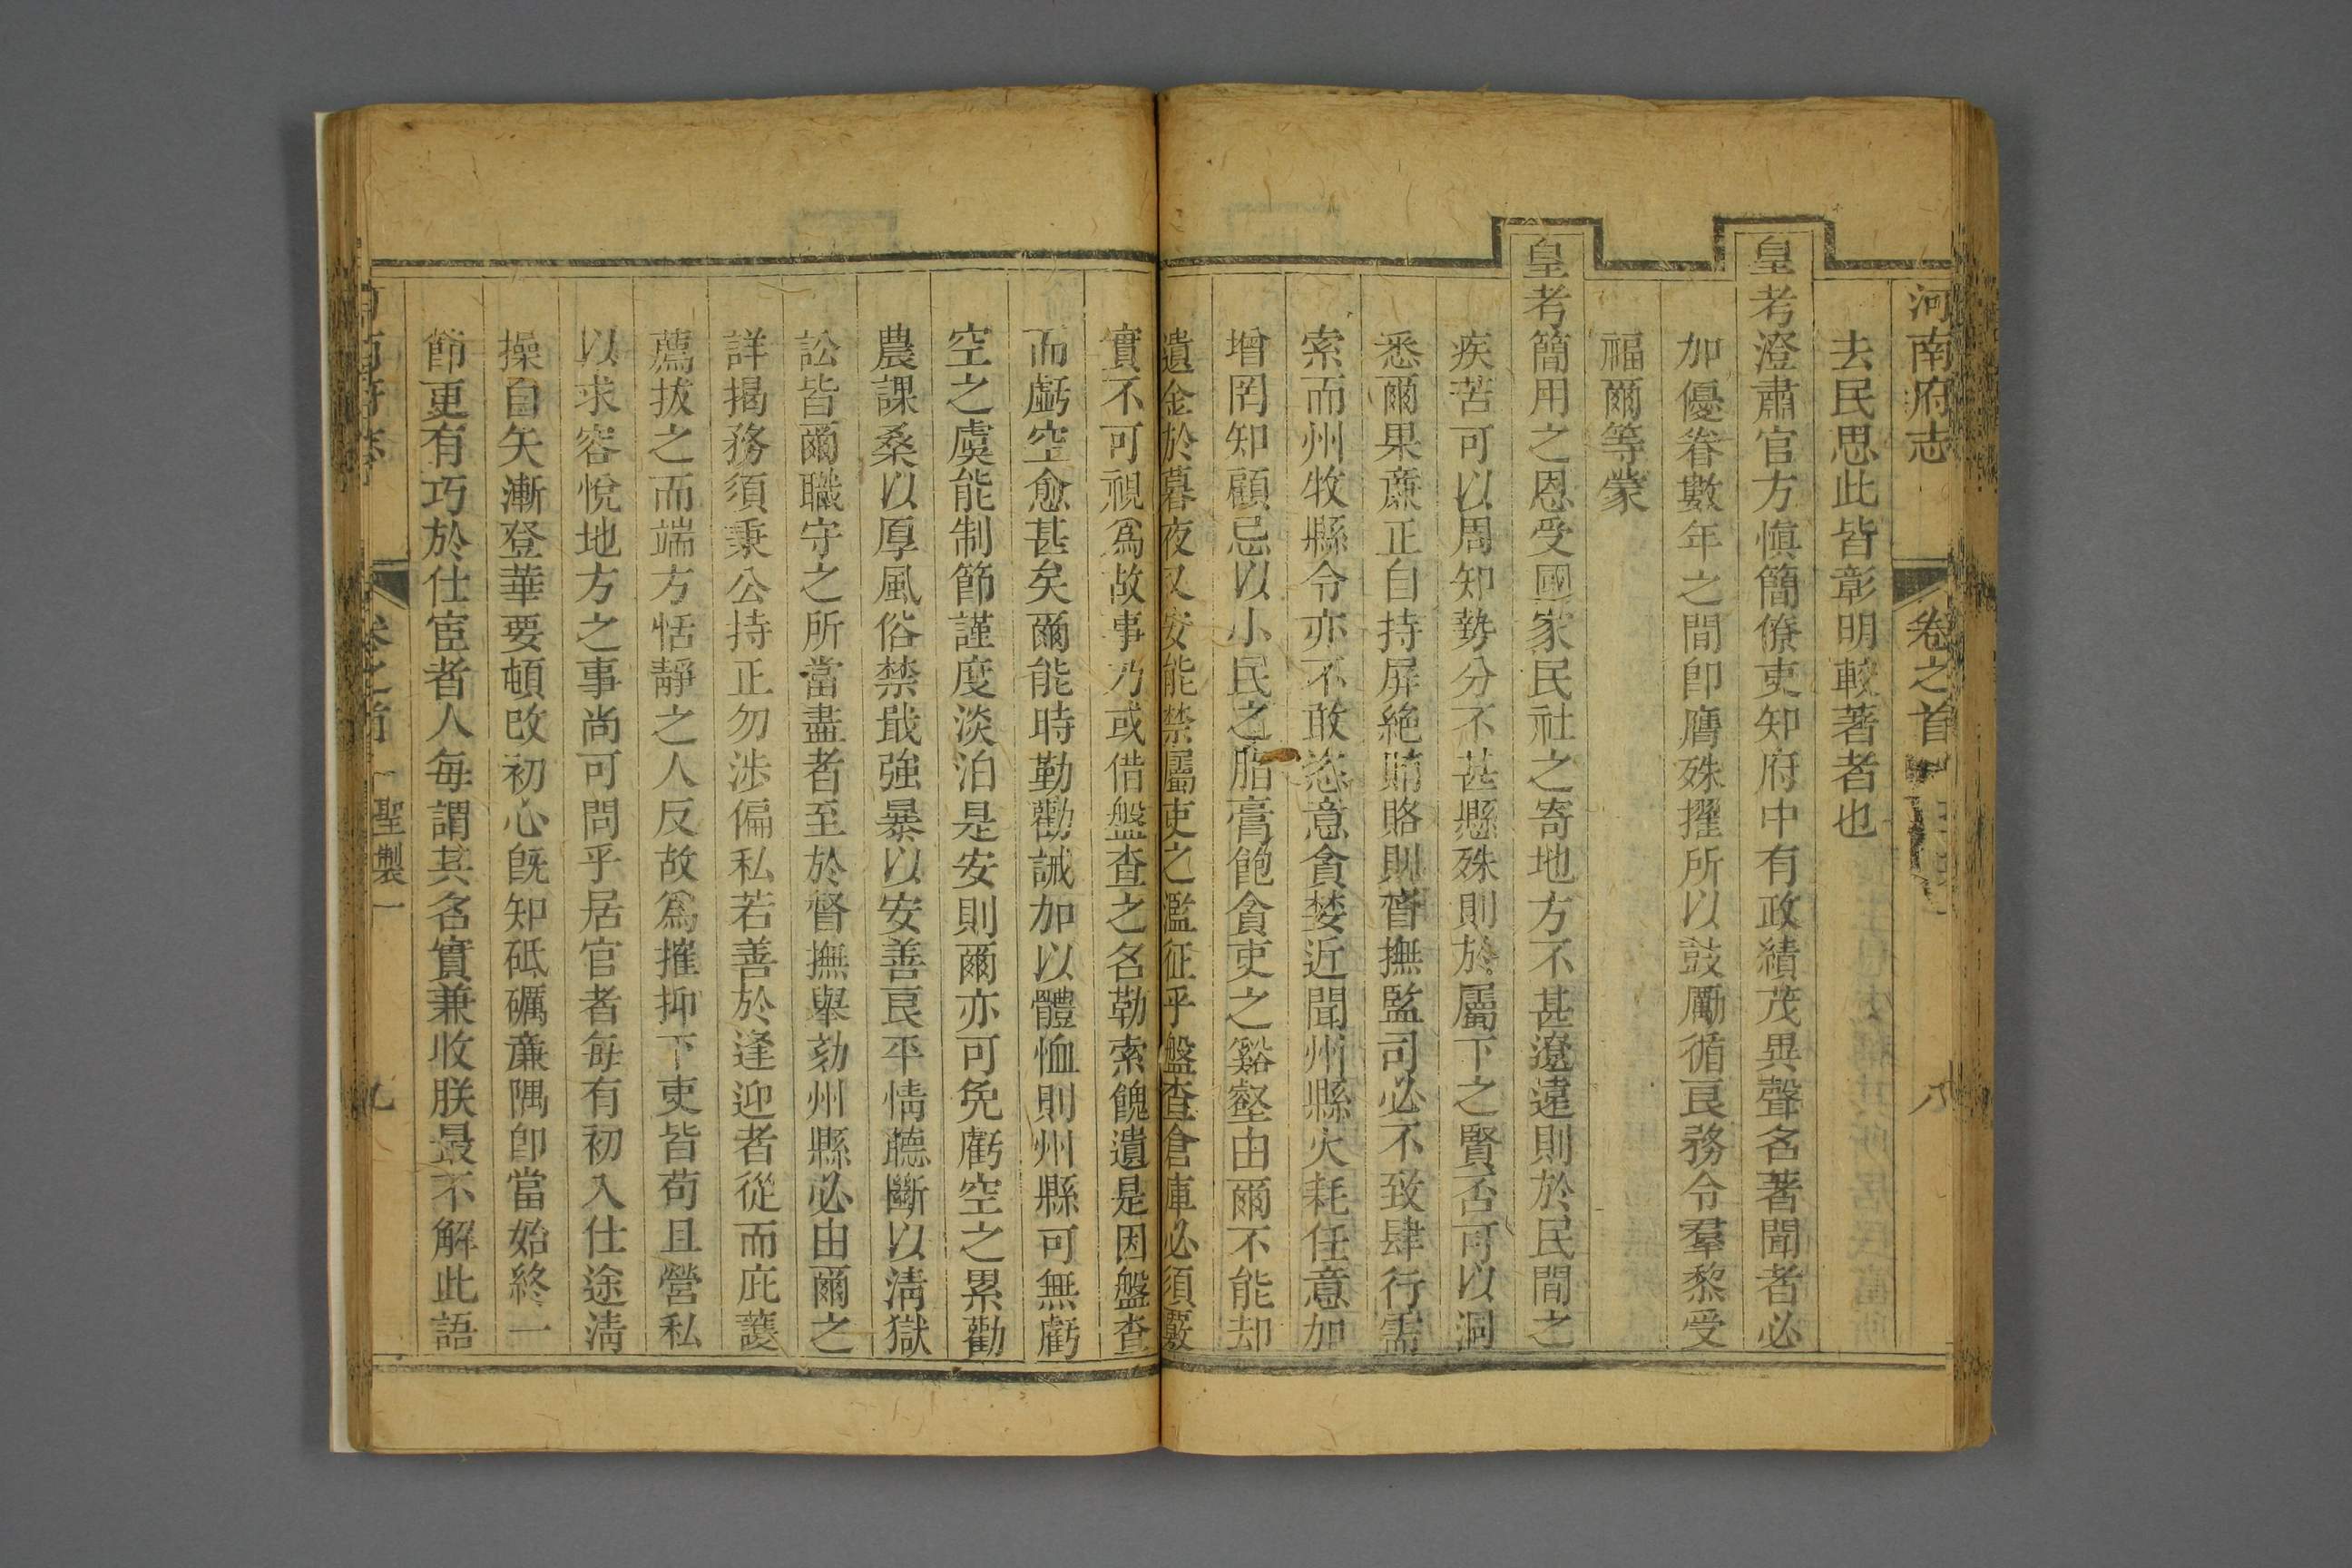 河南府志 卷之首 八
去民思此皆彰明較著者也
皇考澄肅官方愼簡僚吏知府中有政績茂異聲名著聞者必
加優眷數年之間卽膺殊擢所以鼓勵循良務令羣黎受
福爾等蒙
皇考簡用之恩受國家民社之寄地方不甚遼遠則於民間之
疾苦可以周知勢分不甚懸殊則於屬下之賢否可以洞
悉爾果廉正自持屏絶賄賂則督撫監司必不致肆行需
索而州牧縣令亦不敢恣意貪婪近聞州縣火耗任意加
增罔知顧忌以小民之脂膏飽貪吏之谿壑由爾不能却
遺金於暮夜又安能禁屬吏之濫征乎盤查倉庫必須覈
實不可視爲故事乃或借盤查之名勒索餽遺是因盤查
而虧空愈甚矣爾能時勤勸誡加以體恤則州縣可無虧
空之虞能制節謹度淡泊是安則爾亦可免虧空之累勸
農課桑以厚風俗禁戢強暴以安善良平情聽斷以淸獄
訟皆爾職守之所當盡者至於督撫舉劾州縣必由爾之
詳揭務須秉公持正勿涉偏私若善於逢迎者從而庇護
薦拔之而端方恬靜之人反故爲摧抑下吏皆苟且營私
以求容悅地方之事尚可問乎居官者每有初入仕途淸
操自矢漸登華要頓改初心旣知砥礪廉隅卽當始終一
節更有巧於仕宦者人每謂其名實兼收朕最不解此語
河南府志 卷之首 聖製一 九